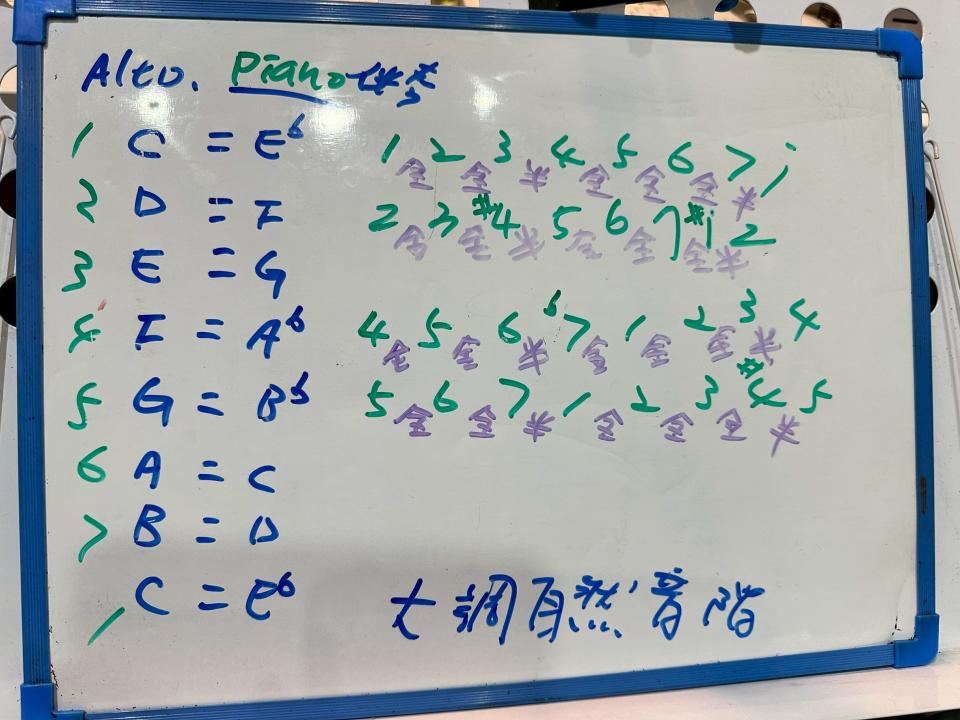 Alto. Piano伴奏
1 C = E♭
2 D = F
3 E = G
4 F = A♭
5 G = B♭
6 A = C
7 B = D
1 C = E♭
1 2 3 4 5 6 7 i
全 全 半 全 全 全 半
2 3 #4 5 6 7 #i 2
全 全 半 全 全 全 半
4 5 6 ♭7 1 2 3 4
全 全 半 全 全 全 半
5 6 7 1 2 3 #4 5
全 全 半 全 全 全 半
大調自然音階